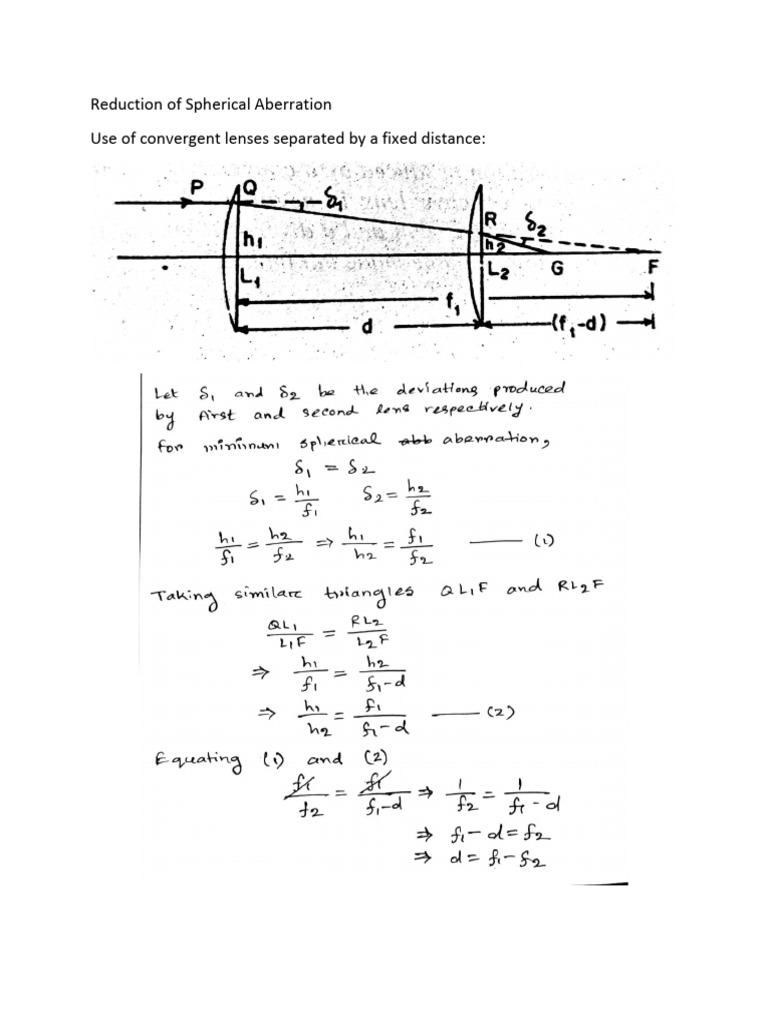 Reduction of Spherical Aberration
Use of convergent lenses separated by a fixed distance:
P Q δ₁
R δ₂
h₁ h₂
L₁ L₂ G F
f₁
d (f₁-d)
Let δ₁ and δ₂ be the deviations produced
by first and second lens respectively.
for minimum spherical abb aberration,
δ₁ = δ₂
δ₁ = h₁/f₁ δ₂ = h₂/f₂
h₁/f₁ = h₂/f₂ ⇒ h₁/h₂ = f₁/f₂ —— (1)
Taking similare triangles QL₁F and RL₂F
QL₁/L₁F = RL₂/L₂F
⇒ h₁/f₁ = h₂/f₁-d
⇒ h₁/h₂ = f₁/f₁-d —— (2)
Equating (1) and (2)
f₁/f₂ = f₁/f₁-d ⇒ 1/f₂ = 1/f₁-d
⇒ f₁-d = f₂
⇒ d = f₁-f₂